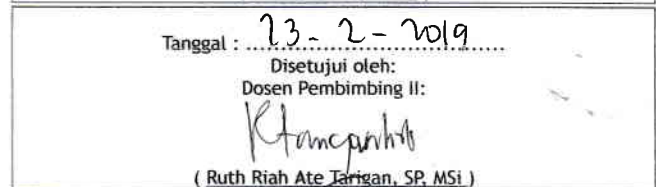 Tanggal : 23 - 2 - 2019
Disetujui oleh:
Dosen Pembimbing II:
( Ruth Riah Ate Tarigan, SP, MSi )